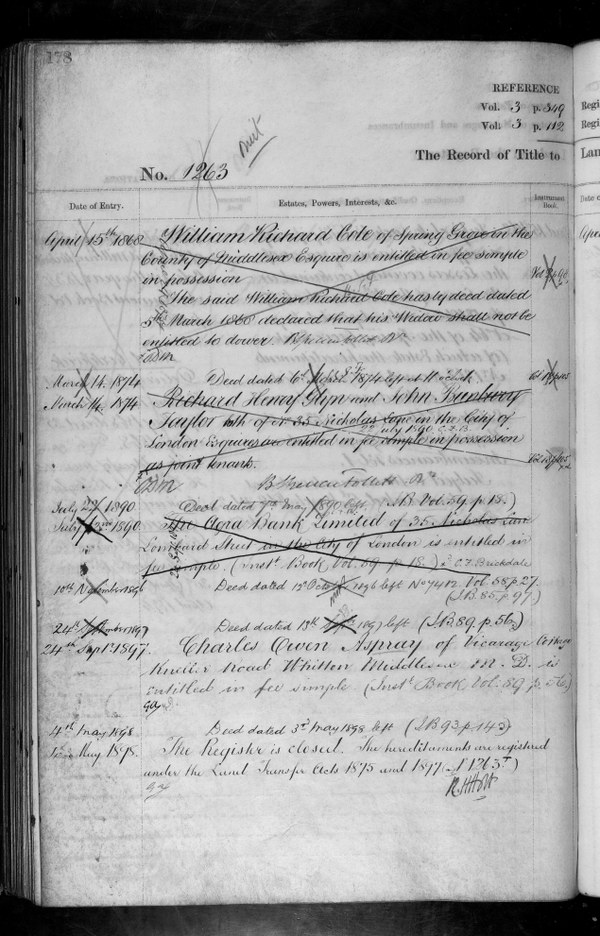 178
REFERENCE
Vol. 3 p. 349
Vol. 3 p. 112
The Record of Title to
No. 1263
Date of Entry.
Estates, Powers, Interests, &c.
Instrument Book.
April 15th 1868
William Richard Cole of Spring Grove in the
County of Middlesex Esquire is entitled in fee simple
in possession
The said William Richard Cole has by deed dated
5th March 1868 declared that his Widow shall not be
entitled to dower. Brent Follett Rr
March 14. 1874
Deed dated 1874 left at 11 o'clock
March 14. 1874
Richard Henry Glyn and John Bunbury
Taylor both of 35 Nicholas Lane in the City of
London Esquires are entitled in fee simple in possession
July 1890 C.F.B.
as joint tenants.
Brent Follett Rr
July 22 1890.
Deed dated 7th May 1890 left (I.B. Vol. 59. p. 15.)
July 22nd 1890
The Agra Bank Limited of 35, Nicholas Lane
Lombard Street in the City of London is entitled in
fee simple. (Inst. Book, Vol. 59 p. 15.) C.F. Brickdale
10th November 1896
Deed dated 13 Octr 1896 left No 7412. Vol. 58 p 27.
(I.B. 85. p 97.)
24th September 1897
Deed dated 13th 1897 left (I.B. 89. p. 56.)
24th Sept 1897.
Charles Owen Aspray of Vicarage Cottage
Kneller Road Whitton Middlesex M.D. is
entitled in fee simple. (Inst. Book, Vol. 89 p. 56.)
4th May 1898.
Deed dated 3rd May 1898 left (I.B 93 p. 143)
May 1898.
The Register is closed. The hereditaments are registered
under the Land Transfer Acts 1875 and 1897 (No 1263T)
R H Holt
Regi
Regi
Lan
Date o